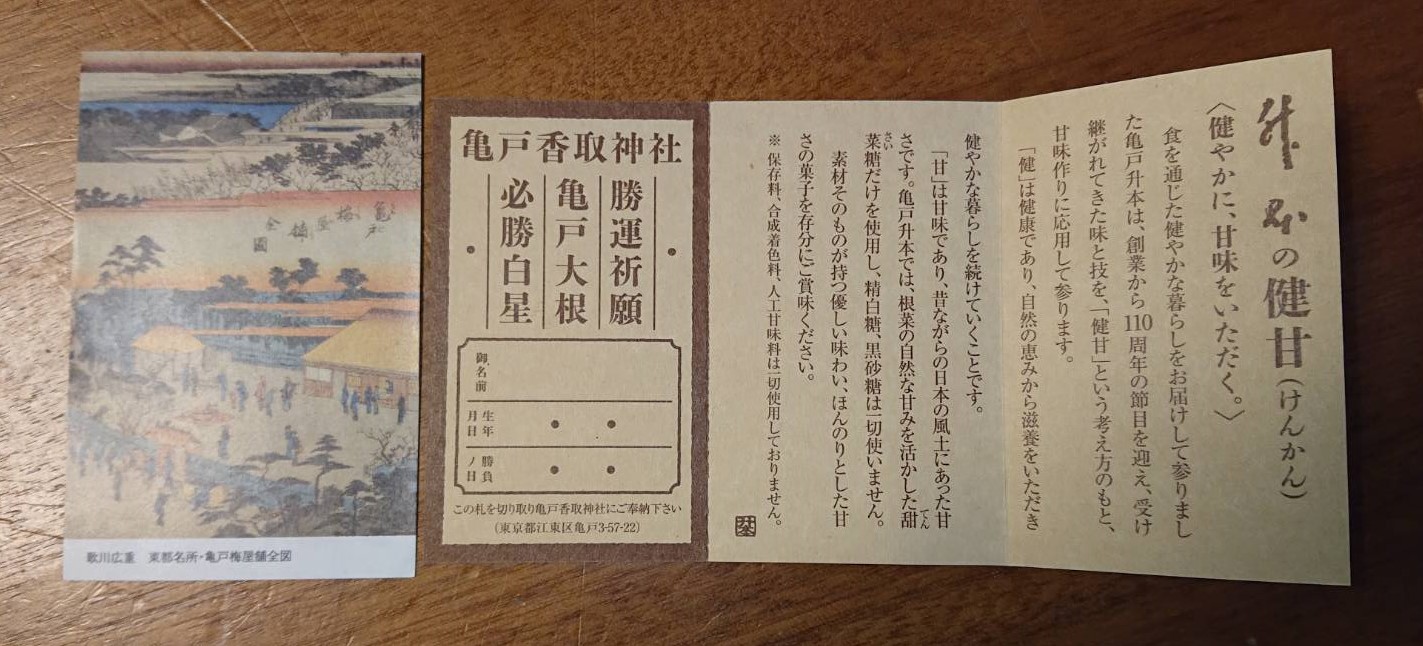 亀戸
梅屋舗
全図
歌川広重　東都名所・亀戸梅屋舗全図
亀戸香取神社
勝運祈願
亀戸大根
必勝白星
御名前
生年月日
勝負ノ日
この札を切り取り亀戸香取神社にご奉納下さい
(東京都江東区亀戸3-57-22)
升本の健甘(けんかん)
〈健やかに、甘味をいただく。〉
食を通じた健やかな暮らしをお届けして参りまし
た亀戸升本は、創業から110周年の節目を迎え、受け
継がれてきた味と技を、「健甘」という考え方のもと、
甘味作りに応用して参ります。
「健」は健康であり、自然の恵みから滋養をいただき
健やかな暮らしを続けていくことです。
「甘」は甘味であり、昔ながらの日本の風土にあった甘
さです。亀戸升本では、根菜の自然な甘みを活かした甜
菜糖だけを使用し、精白糖、黒砂糖は一切使いません。
てん
さい
素材そのものが持つ優しい味わい、ほんのりとした甘
さの菓子を存分にご賞味ください。
※ 保存料、合成着色料、人工甘味料は一切使用しておりません。